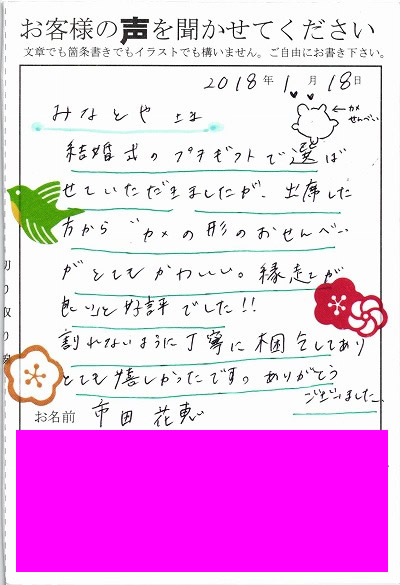 お客様の声を聞かせてください
文章でも箇条書きでもイラストでも構いません。ご自由にお書き下さい。
2018年 1月 18日
みなとや さま
←カメ
せんべい
結婚式のプチギフトで選ば
せていただきましたが、出席した
方から"カメの形のおせんべい
がとてもかわいい。縁起が
良い"と好評でした!!
割れないように丁寧に梱包してあり
とても嬉しかったです。ありがとう
ございました。
お名前 市田 花恵
切り取り線